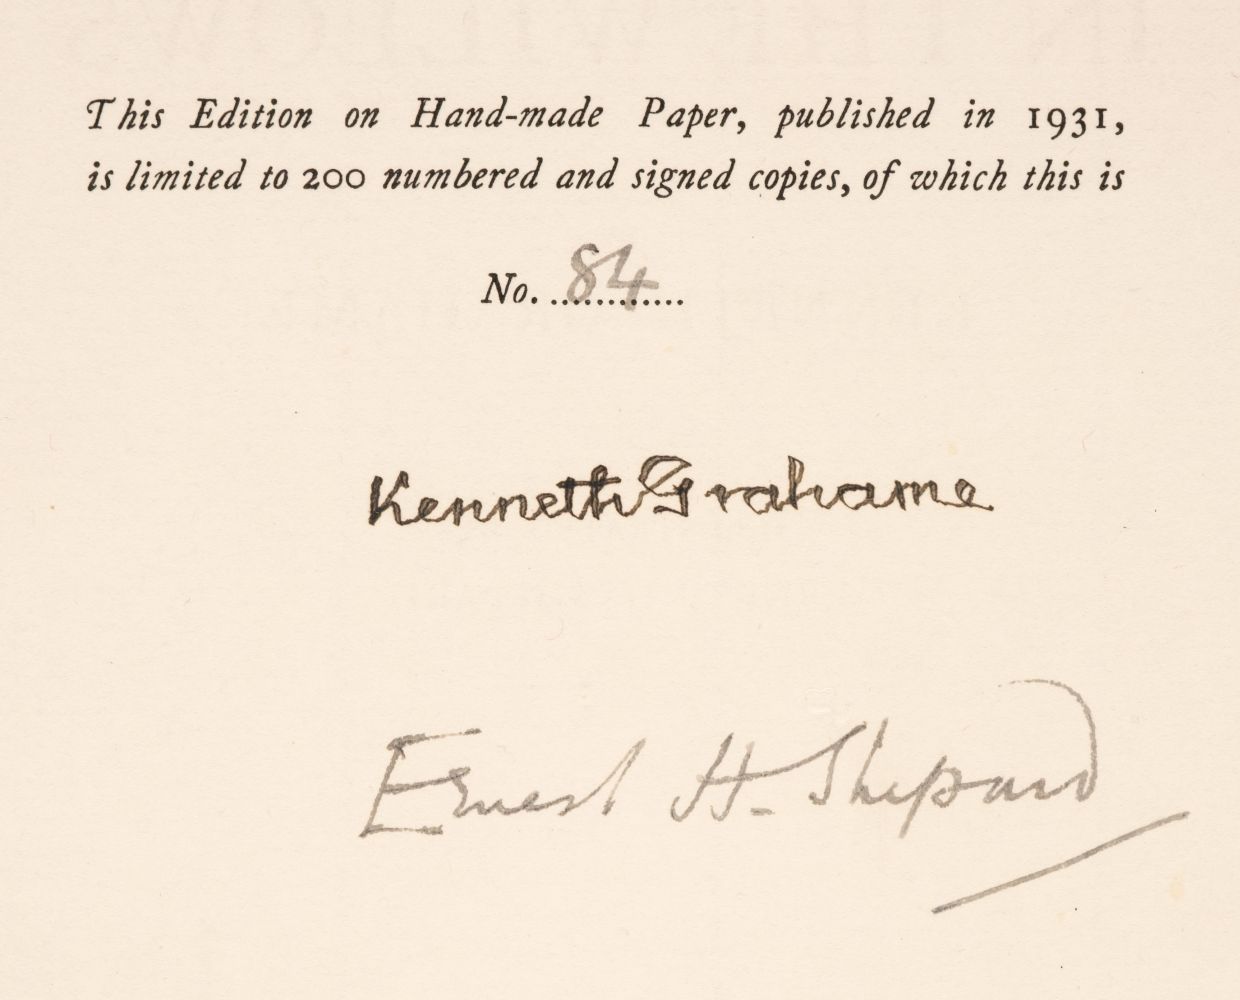 This Edition on Hand-made Paper, published in 1931,
is limited to 200 numbered and signed copies, of which this is
No. 84
Kenneth Grahame
Ernest H. Shepard